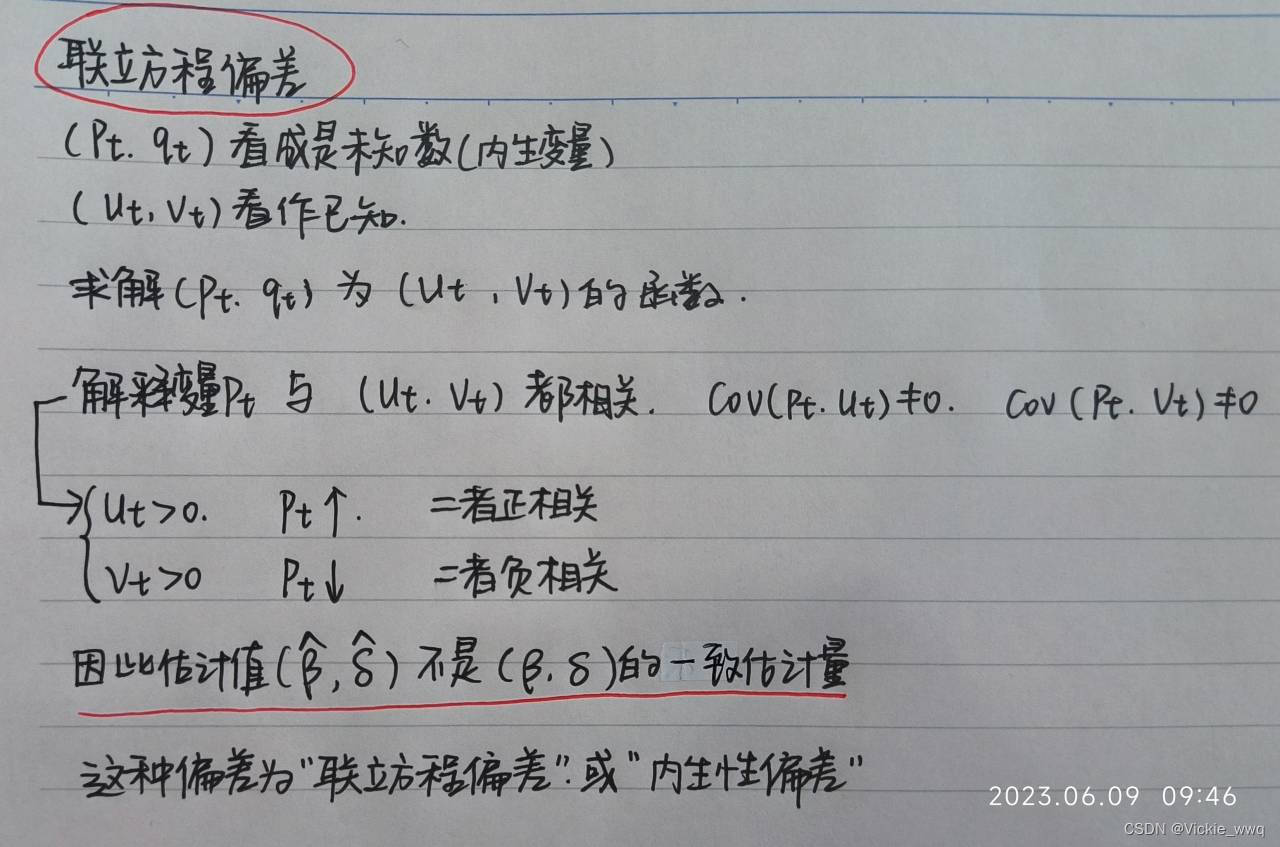 联立方程偏差
(Pt. qt) 看成是未知数(内生变量)
(Ut, Vt) 看作已知.
求解(Pt. qt) 为 (Ut , Vt)的函数.
解释变量Pt 与 (Ut. Vt) 都相关. Cov(Pt. Ut)≠0. Cov(Pt. Vt)≠0
Ut>0. Pt↑. 二者正相关
Vt>0 Pt↓ 二者负相关
因此估计值(β̂, δ̂) 不是 (β. δ)的一致估计量
这种偏差为"联立方程偏差".或"内生性偏差"
2023.06.09 09:46
CSDN @Vickie_wwq